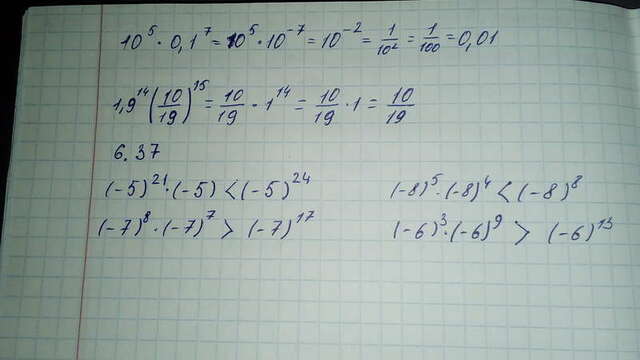 10⁵ · 0,1⁷ = 10⁵ · 10⁻⁷ = 10⁻² = 1/10² = 1/100 = 0,01
1,9¹⁴ (10/19)¹⁵ = 10/19 · 1¹⁴ = 10/19 · 1 = 10/19
6.37
(-5)²¹ · (-5) < (-5)²⁴ (-8)⁵ · (-8)⁴ < (-8)⁸
(-7)⁸ · (-7)⁷ > (-7)¹⁷ (-6)³ · (-6)⁹ > (-6)¹³